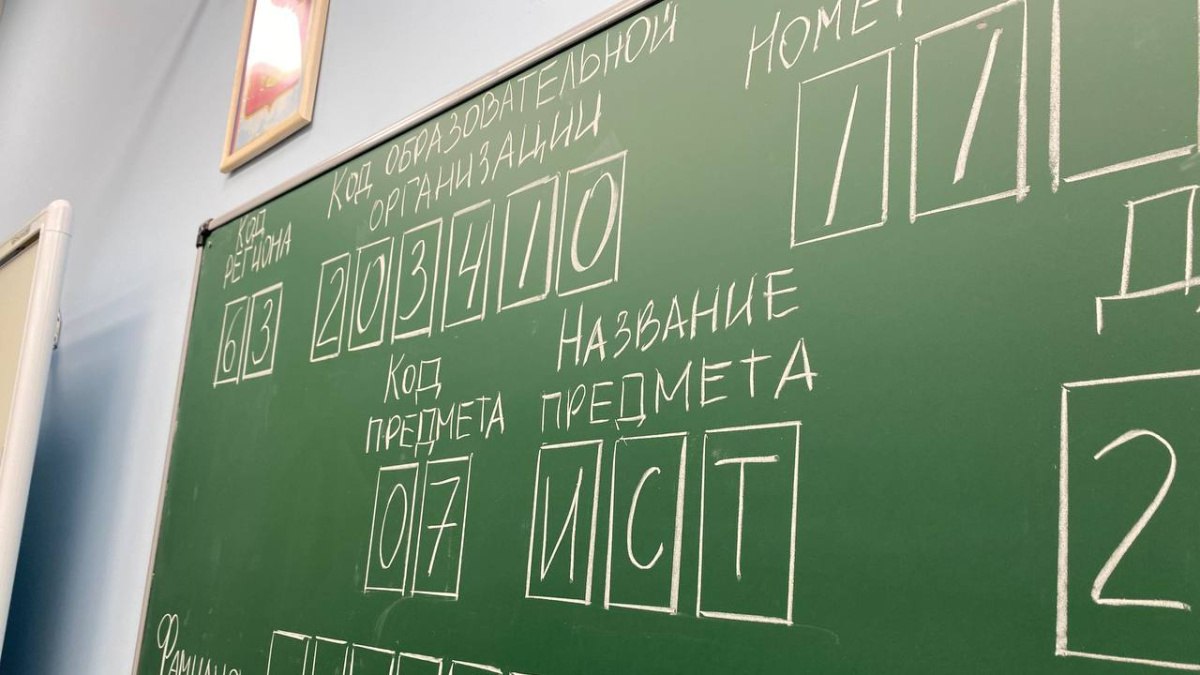 КОД
РЕГИОНА
63
КОД ОБРАЗОВАТЕЛЬНОЙ
ОРГАНИЗАЦИИ
203410
НОМЕР
11
КОД
ПРЕДМЕТА
07
НАЗВАНИЕ
ПРЕДМЕТА
ИСТ
Д
2